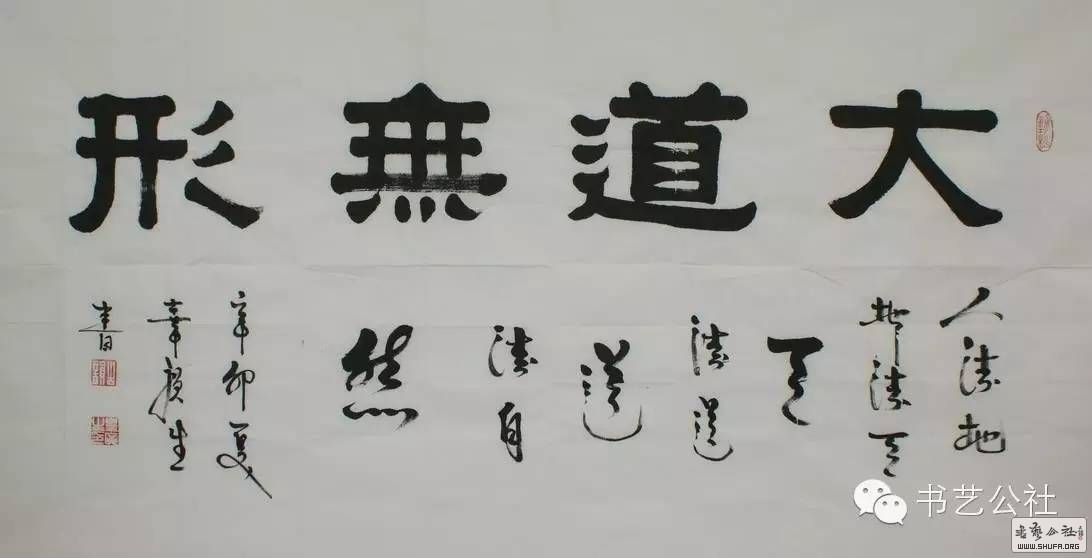 大道無形
人法地
地法天
天
法道
道
法自
然
辛卯夏
生
書
书艺公社
书艺公社
WWW.SHUFA.ORG